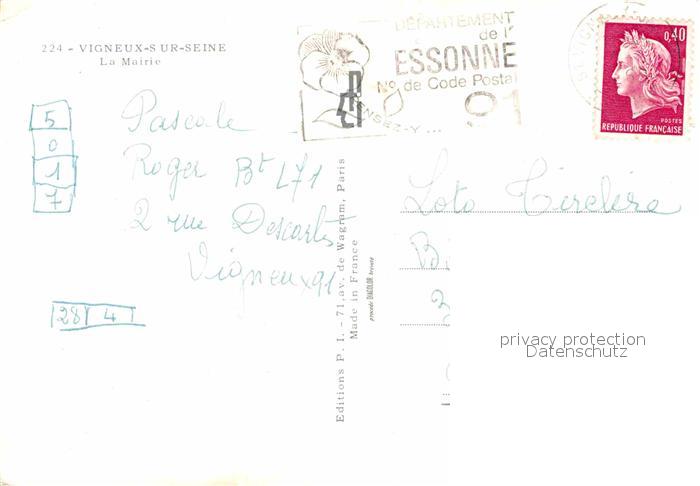 224 - VIGNEUX-SUR-SEINE
La Mairie
DÉPARTEMENT
de l'
ESSONNE
N° de Code Postal
91
PENSEZ-Y ...
0,40
POSTES
REPUBLIQUE FRANÇAISE
5
0
1
7
Pascale
Roger Bt L71
2 rue Descartes
Vigneux 91
28 4
Editions P. I. - 71, av. de Wagram, Paris
Made in France
procédé DIACOLOR breveté
Loto Tirelire
privacy protection
Datenschutz